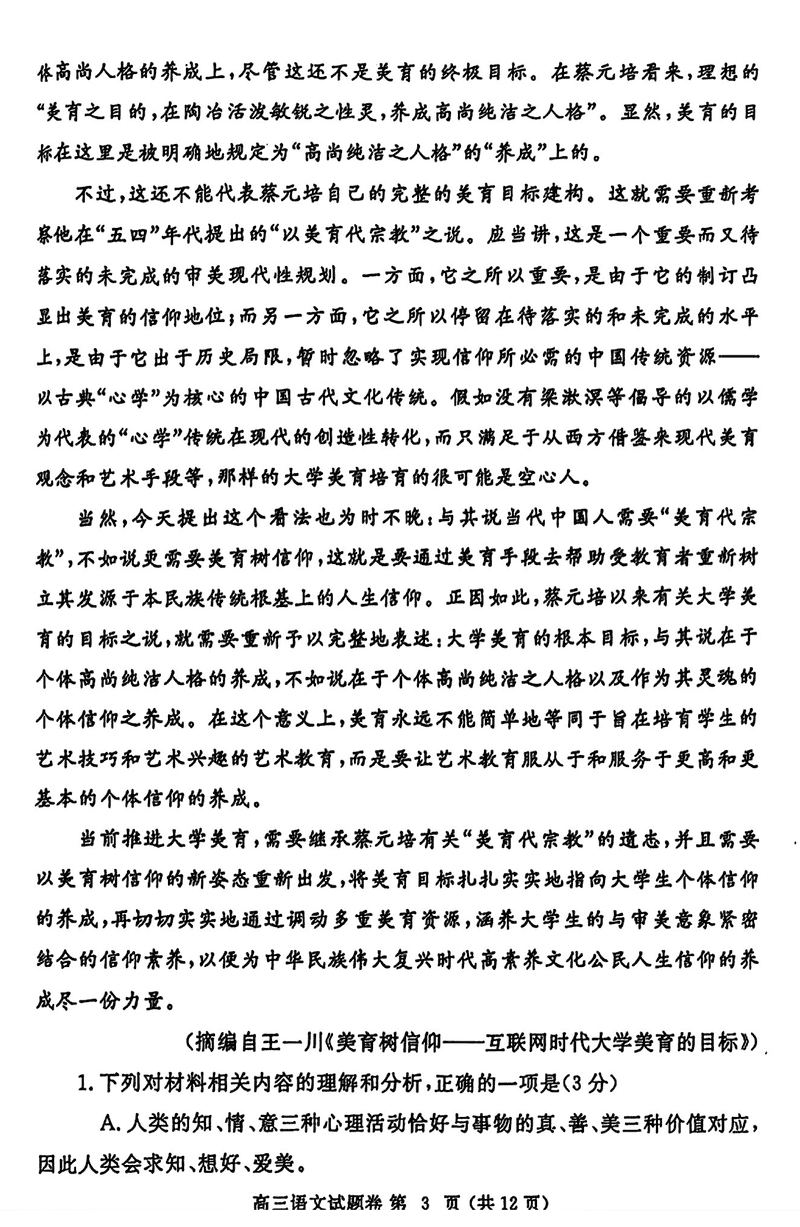 体高尚人格的养成上,尽管这还不是美育的终极目标。在蔡元培看来,理想的
“美育之目的,在陶冶活泼敏锐之性灵,养成高尚纯洁之人格”。显然,美育的目
标在这里是被明确地规定为“高尚纯洁之人格”的“养成”上的。
不过,这还不能代表蔡元培自己的完整的美育目标建构。这就需要重新考
察他在“五四”年代提出的“以美育代宗教”之说。应当讲,这是一个重要而又待
落实的未完成的审美现代性规划。一方面,它之所以重要,是由于它的制订凸
显出美育的信仰地位;而另一方面,它之所以停留在待落实的和未完成的水平
上,是由于它出于历史局限,暂时忽略了实现信仰所必需的中国传统资源——
以古典“心学”为核心的中国古代文化传统。假如没有梁漱溟等倡导的以儒学
为代表的“心学”传统在现代的创造性转化,而只满足于从西方借鉴来现代美育
观念和艺术手段等,那样的大学美育培育的很可能是空心人。
当然,今天提出这个看法也为时不晚:与其说当代中国人需要“美育代宗
教”,不如说更需要美育树信仰,这就是要通过美育手段去帮助受教育者重新树
立其发源于本民族传统根基上的人生信仰。正因如此,蔡元培以来有关大学美
育的目标之说,就需要重新予以完整地表述:大学美育的根本目标,与其说在于
个体高尚纯洁人格的养成,不如说在于个体高尚纯洁之人格以及作为其灵魂的
个体信仰之养成。在这个意义上,美育永远不能简单地等同于旨在培育学生的
艺术技巧和艺术兴趣的艺术教育,而是要让艺术教育服从于和服务于更高和更
基本的个体信仰的养成。
当前推进大学美育,需要继承蔡元培有关“美育代宗教”的遗志,并且需要
以美育树信仰的新姿态重新出发,将美育目标扎扎实实地指向大学生个体信仰
的养成,再切切实实地通过调动多重美育资源,涵养大学生的与审美意象紧密
结合的信仰素养,以便为中华民族伟大复兴时代高素养文化公民人生信仰的养
成尽一份力量。
(摘编自王一川《美育树信仰——互联网时代大学美育的目标》)
1.下列对材料相关内容的理解和分析,正确的一项是(3分)
A.人类的知、情、意三种心理活动恰好与事物的真、善、美三种价值对应,
因此人类会求知、想好、爱美。
高三语文试题卷 第 3 页(共12页)